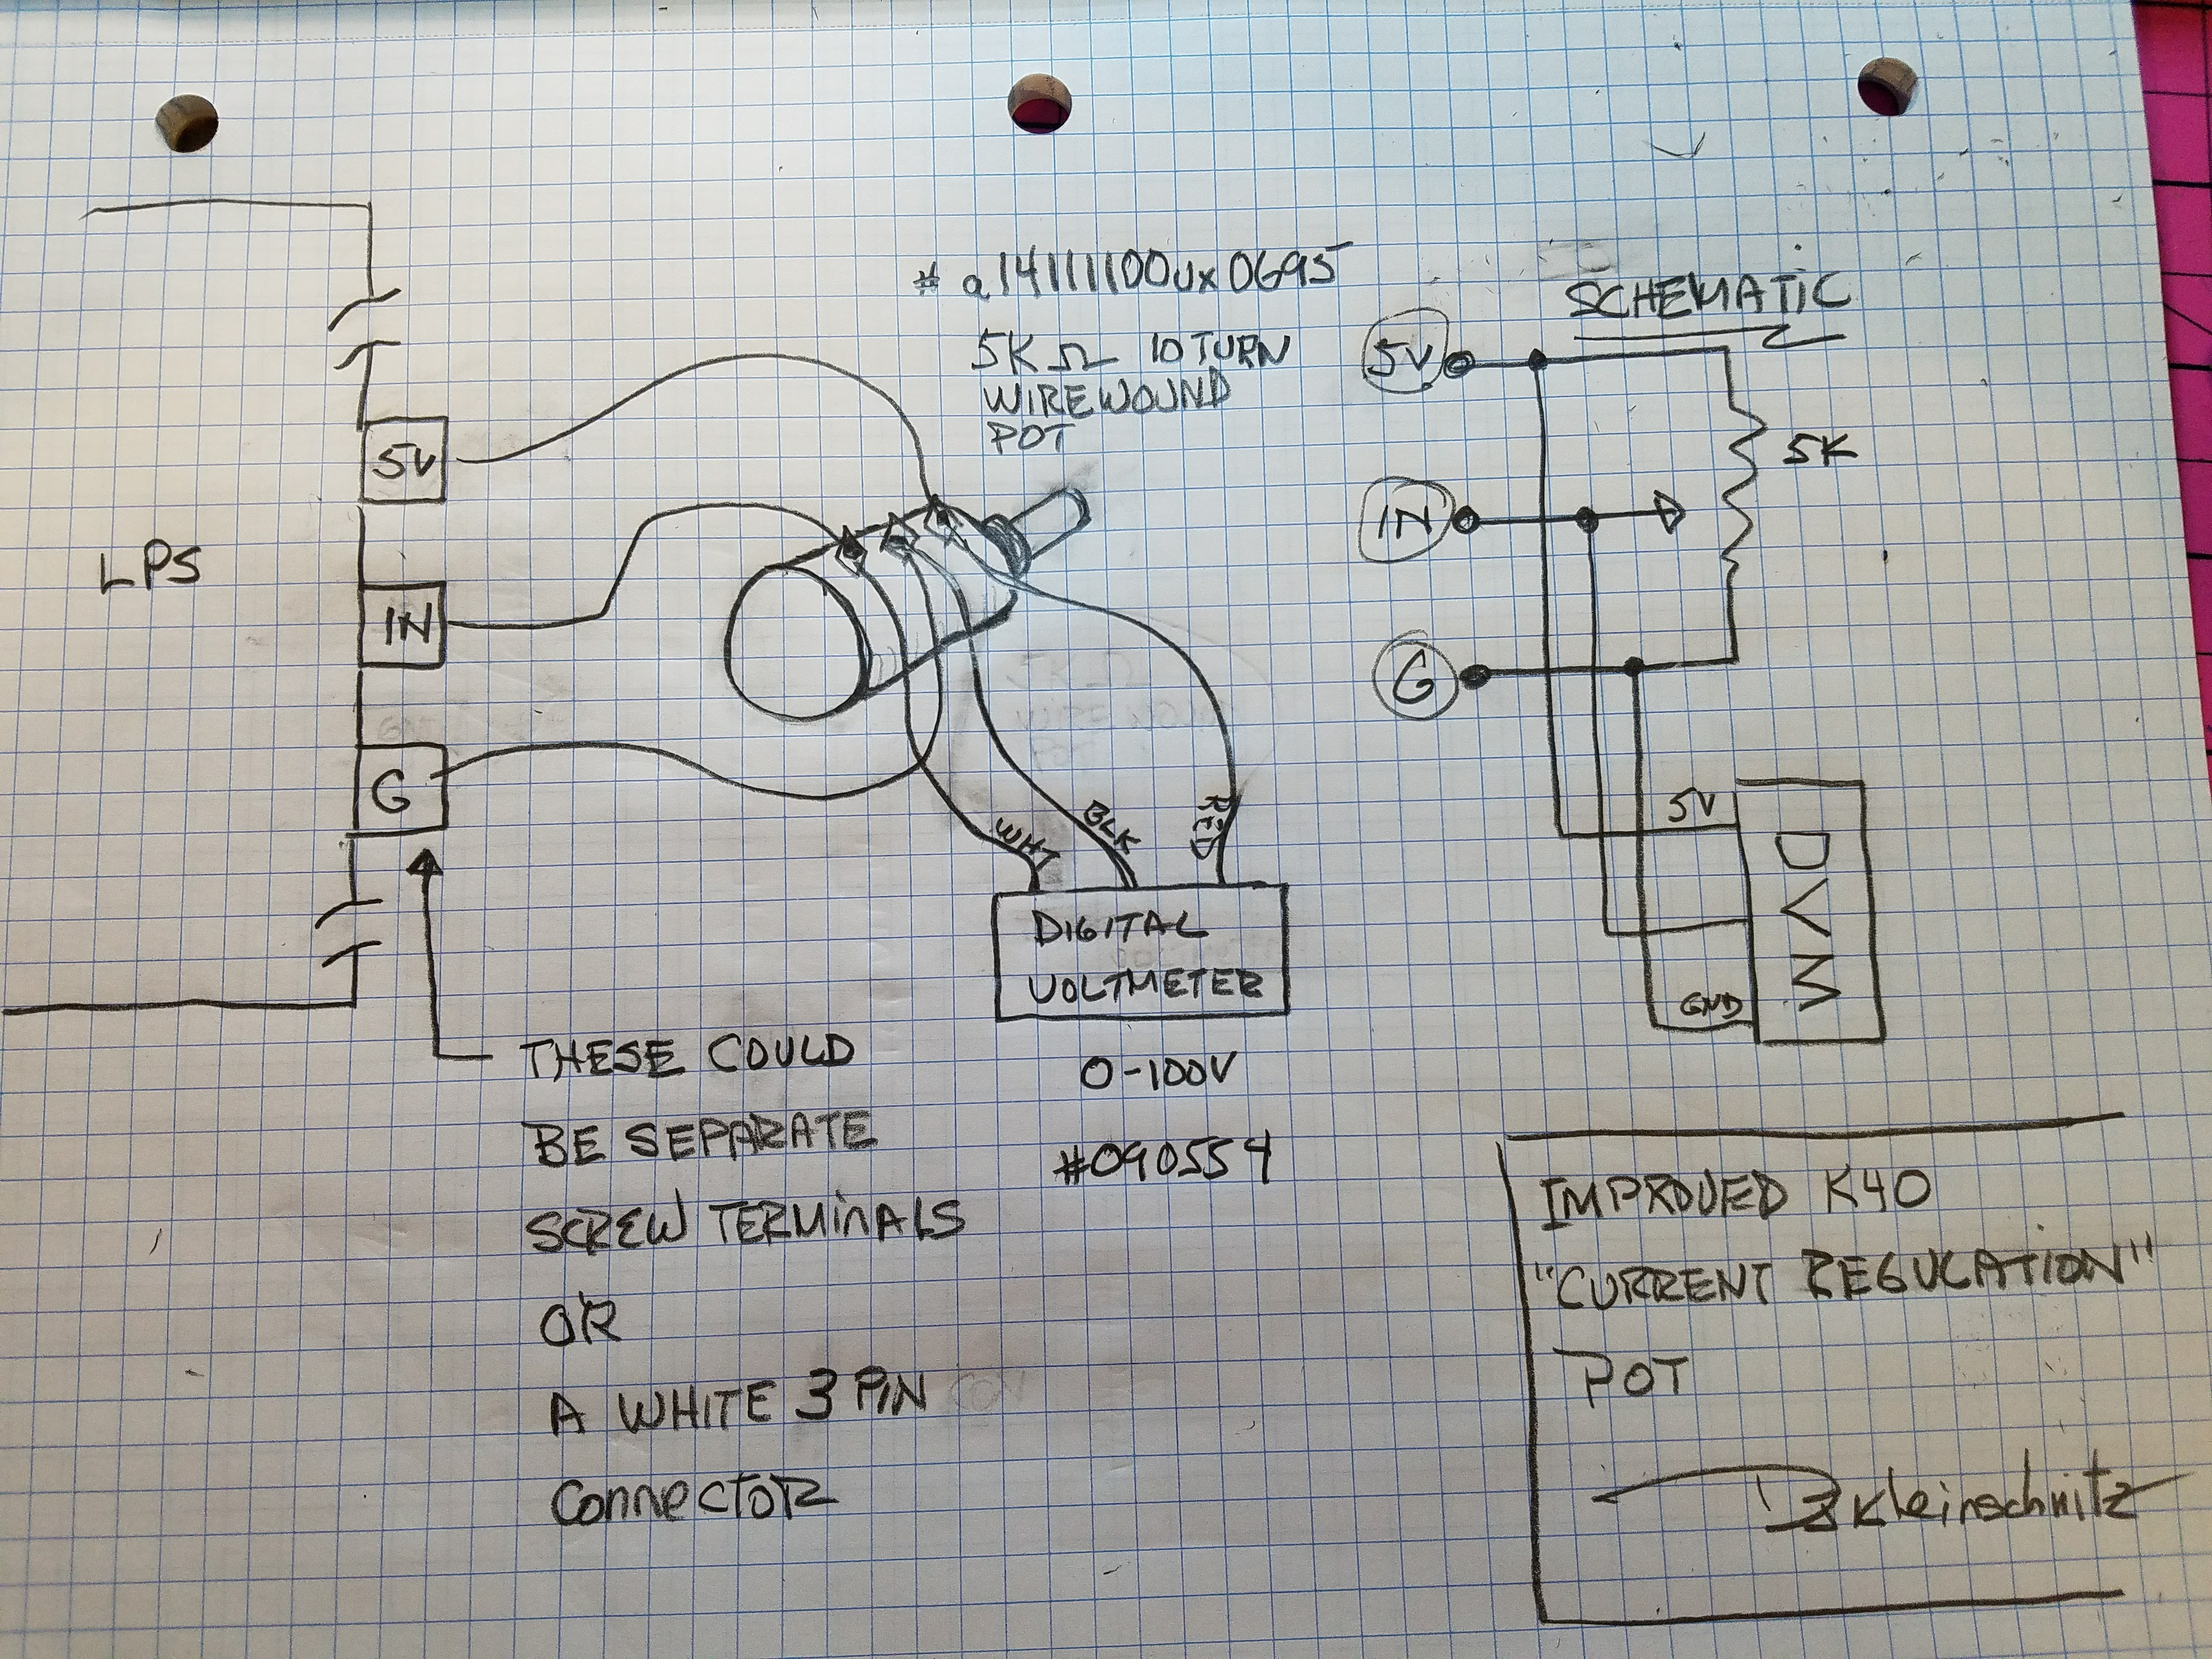 # a14111100ux0695
5K Ω 10 TURN
WIREWOUND
POT
5V
LPS
IN
G
WHT
BLK
RED
DIGITAL
VOLTMETER
0-100V
#090554
THESE COULD
BE SEPARATE
SCREW TERMINALS
OR
A WHITE 3 PIN
CONNECTOR
SCHEMATIC
5V
5K
IN
G
5V
DVM
GND
IMPROVED K40
"CURRENT REGULATION"
POT
Kleinschmitz